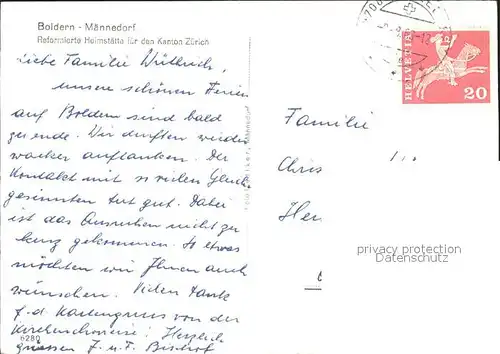 Boldern - Männedorf
Reformierte Heimstätte für den Kanton Zürich
Liebe Familie Wüthrich,
unsere schönen Ferien
auf Boldern sind bald
zu ende. Wir durften wieder
wacker auftanken. Der
Kontakt mit so vielen Gleich-
gesinnten tut gut. Dabei
ist das Ausruhen nicht zu
kurz gekommen. So etwas
möchten wir Ihnen auch
wünschen. Vielen Dank
f. d. Kartengruss von der
Herzlich
grüssen F. u. F. Bischof
6280
Familie
Chris
Her
HELVETIA
20
privacy protection
Datenschutz